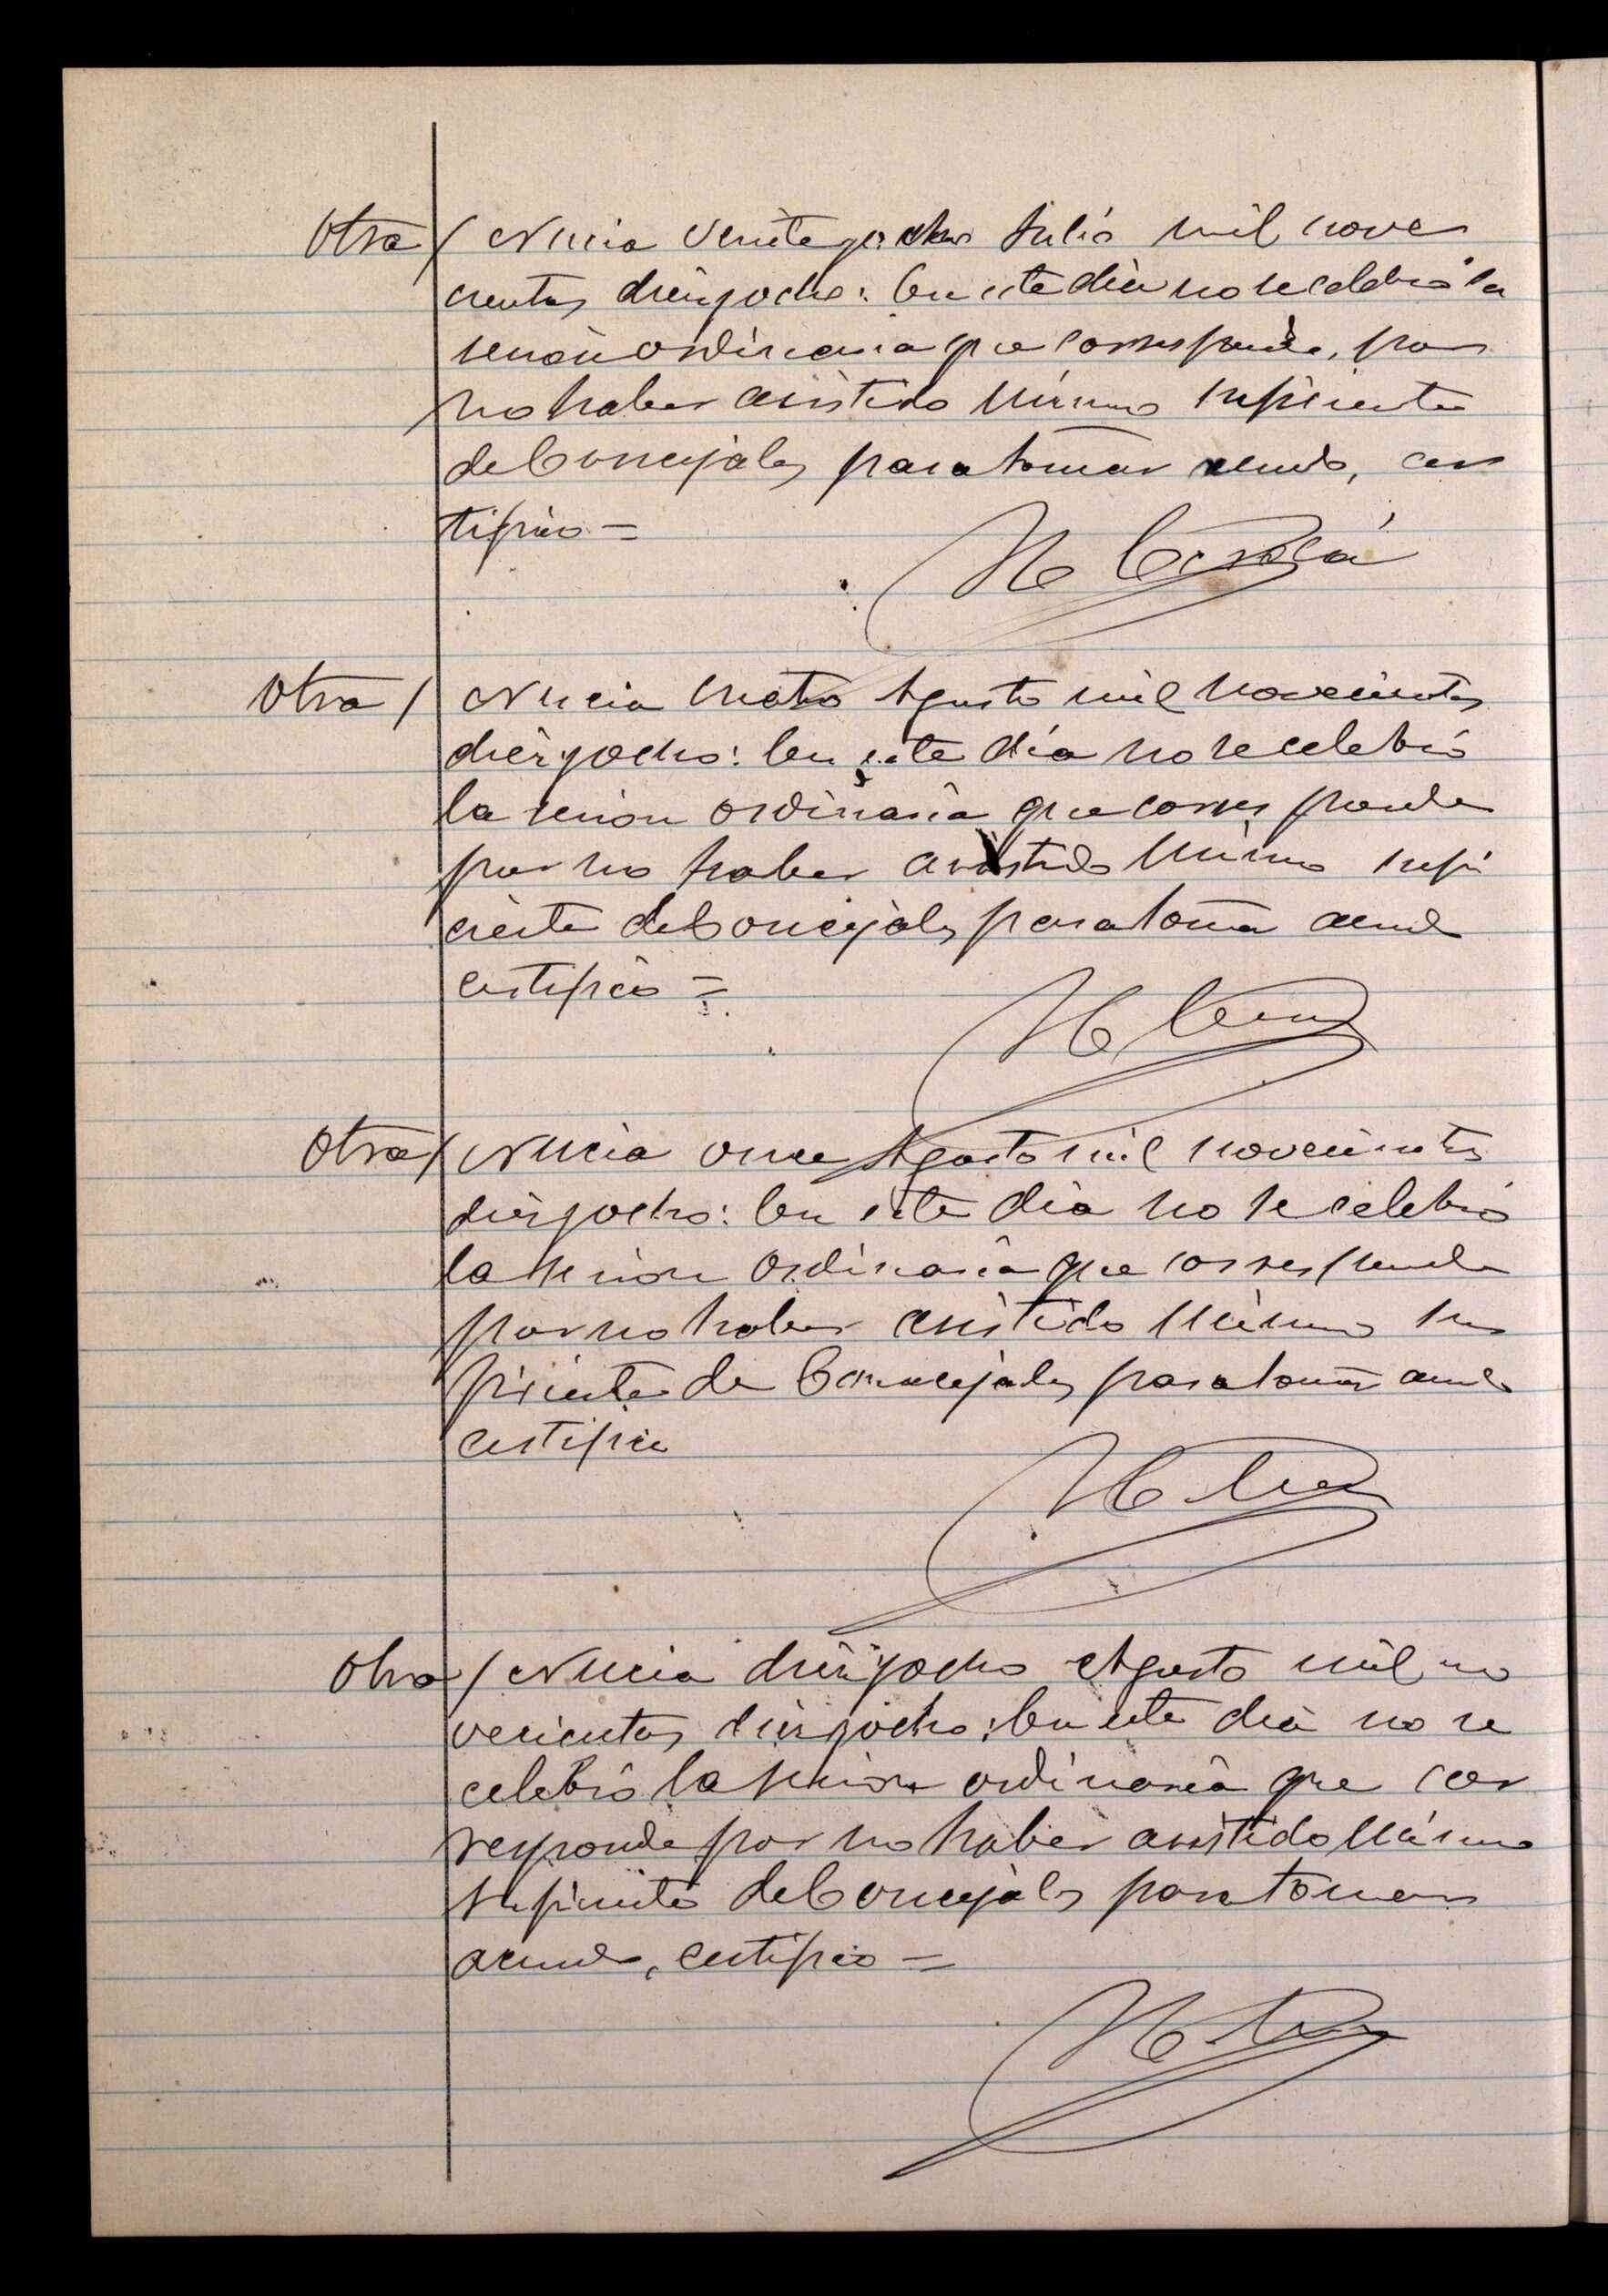 Otra / Nucia veinteyocho Julio mil nove
cientos diezyocho: En este dia no se celebró la
sesión ordinaria que corresponde, por
no haber asistido número suficiente
de Concejales para tomar acuerdo, cer
tifico =
Otra / Nucia cuatro Agosto mil novecientos
diezyocho: En este día no se celebró
la sesion ordinaria que corresponde
por no haber asistido número sufi
ciente de Concejales para tomar acuerdo
certifico =
Otra / Nucia once Agosto mil novecientos
diezyocho: En este dia no se celebró
la sesion ordinaria que corresponde
por no haber asistido número su
ficiente de Concejales para tomar acuerdo
certifico
Otra / Nucia diezyocho Agosto mil no
vecientos diezyocho: En este dia no se
celebró la sesion ordinaria que cor
responde por no haber asistido número
suficiente de Concejales para tomar
acuerdo, certifico =